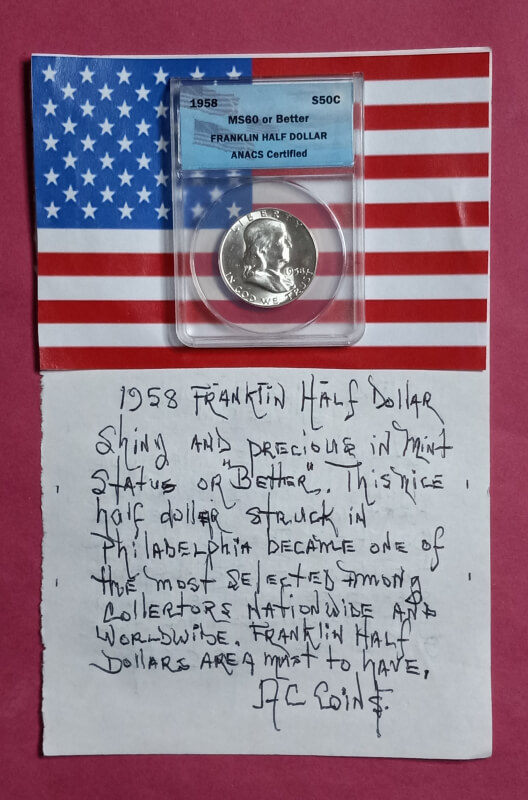 1958 S50C
MS60 or Better
FRANKLIN HALF DOLLAR
ANACS Certified
LIBERTY
1958
IN GOD WE TRUST
1958 FRANKLIN HALF DOLLAR
SHINY AND PRECIOUS IN MINT
STATUS OR "BETTER". THIS NICE
HALF DOLLAR STRUCK IN
PHILADELPHIA BECAME ONE OF
THE MOST SELECTED AMONG
COLLECTORS NATIONWIDE AND
WORLDWIDE. FRANKLIN HALF
DOLLARS ARE A MUST TO HAVE.
AC COINS.